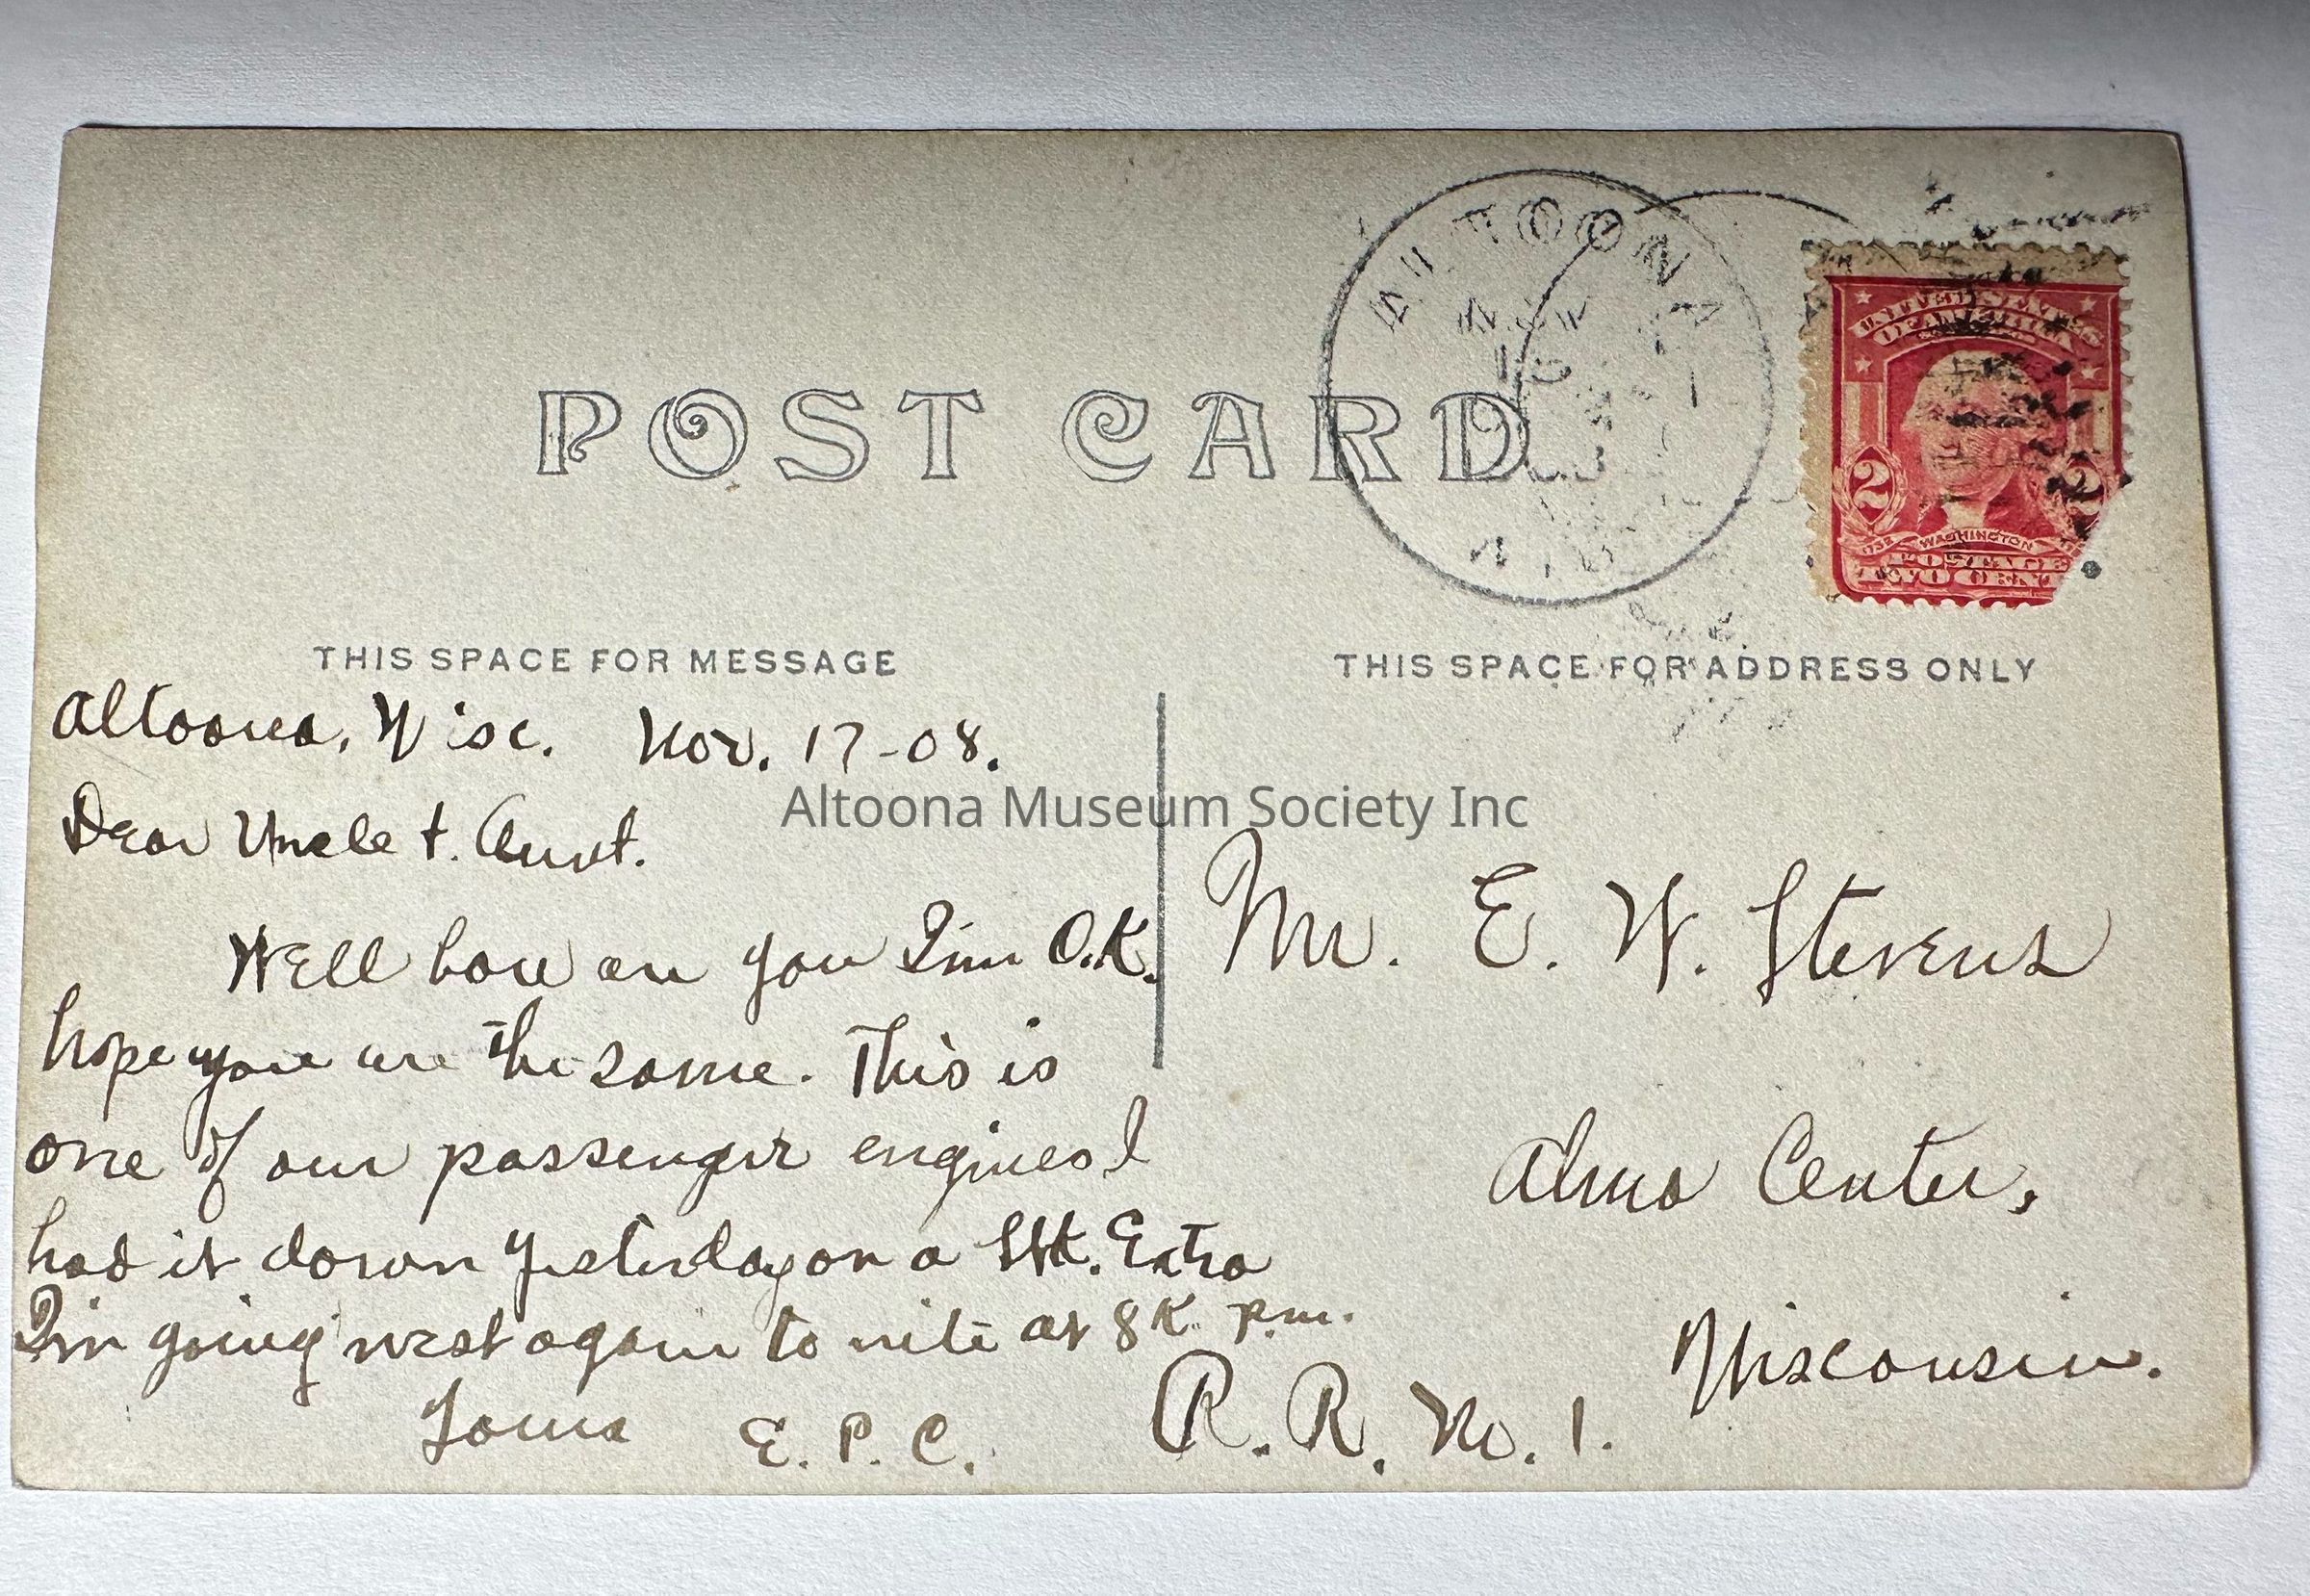 ALTOONA
NOV
WIS
UNITED STATES
OF AMERICA
2 2
1732 WASHINGTON
POSTAGE
TWO CENTS
POST CARD
THIS SPACE FOR MESSAGE
THIS SPACE FOR ADDRESS ONLY
Altoona, Wisc. Nov. 17-08.
Dear Uncle + Aunt.
Well how are you I'm O.K.
hope you are the same. This is
one of our passenger engines I
had it down yesterday on a Stk. Extra
I'm going west again to nite at 8 K p.m.
E. P. C.
Mr. E. W. Stevens
Alma Center,
Wisconsin.
R. R. No. 1.
Altoona Museum Society Inc